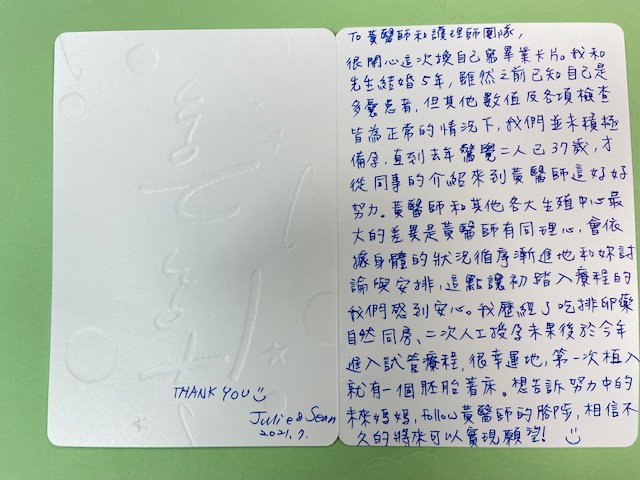 THANK YOU
Julie & Sean
2021.7.
To 黃醫師和護理師團隊,
很開心這次換自己寫畢業卡片。我和
先生結婚5年,雖然之前已知自己是
多囊患者,但其他數值及各項檢查
皆為正常的情況下,我們並未積極
備孕,直到去年驚覺二人已37歲,才
從同事的介紹來到黃醫師這好好
努力。黃醫師和其他各大生殖中心最
大的差異是黃醫師有同理心,會依
據身體的狀況循序漸進地和妳討
論與安排,這點讓初踏入療程的
我們感到安心。我歷經了吃排卵藥
自然同房、二次人工授孕未果後於今年
進入試管療程,很幸運地,第一次植入
就有一個胚胎著床。想告訴努力中的
未來媽媽,follow黃醫師的腳步,相信不
久的將來可以實現願望!